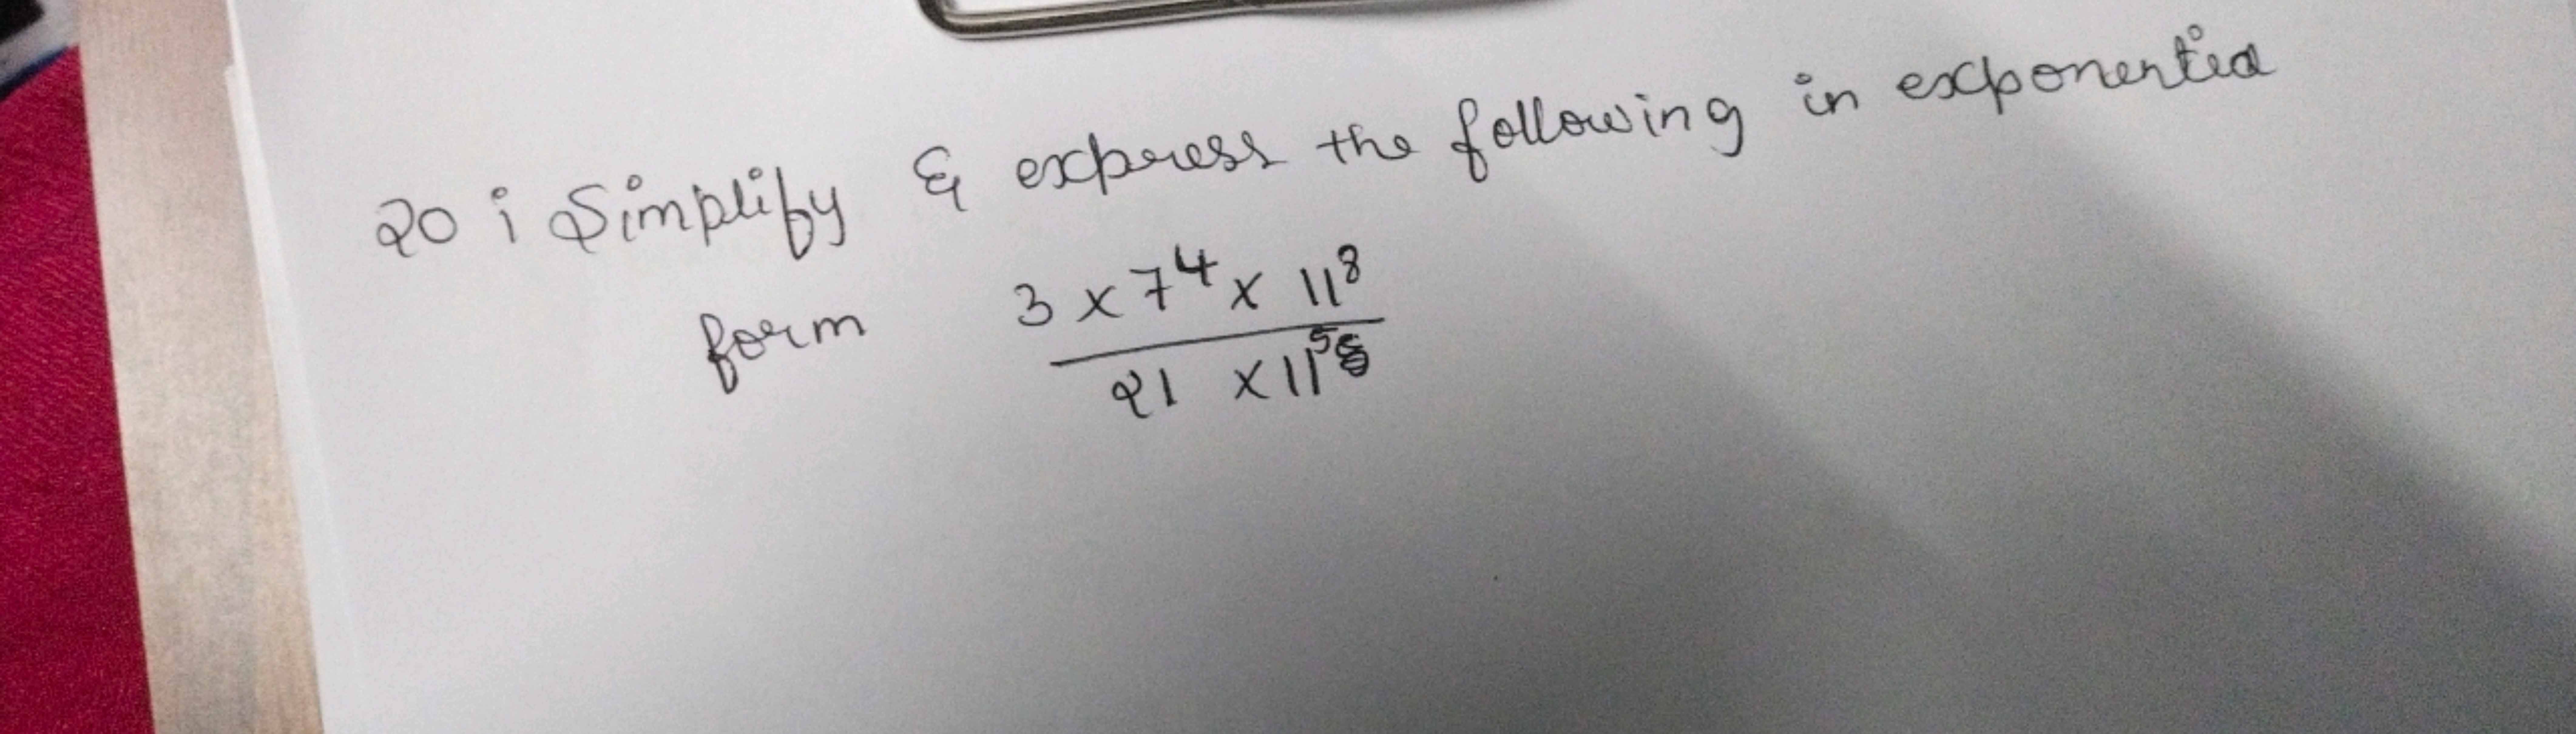 20 i Simplify & express the following in exponentia
form 3 x 7⁴ x 11⁸
21 x 11⁵